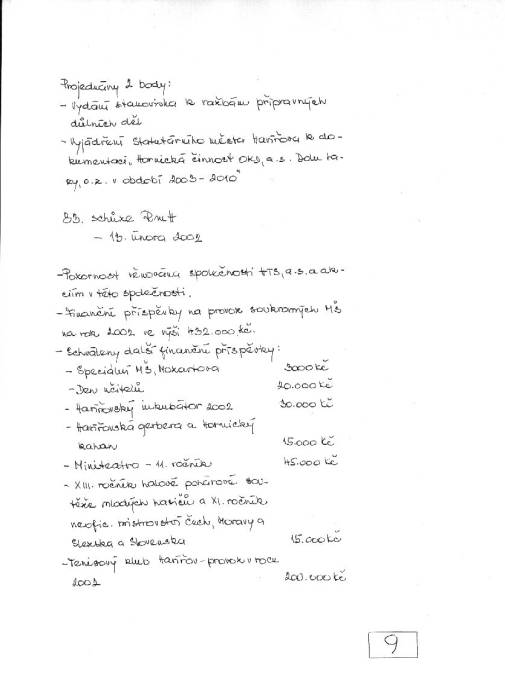 Projednány 2 body:
- Vydání stanoviska k ražbám přípravných
důlních děl
- Vyjádření Statutárního města Havířova k do-
kumentaci „Hornická činnost OKD, a.s. Dolu La-
zy, o.z. v období 2003 - 2010"
83. schůze RmH
- 13. února 2002
- Pozornost věnována společnosti HTS, a.s. a ak-
ciím v této společnosti.
- Finanční příspěvky na provoz soukromých MŠ
na rok 2002 ve výši 432.000 kč.
- Schváleny další finanční příspěvky:
- Speciální MŠ, Mozartova 3000 kč
- Den učitelů 20.000 kč
- Havířovský inkubátor 2002 30.000 kč
- Havířovská gerbera a Hornický
kahan 15.000 kč
- Miniteatro - 11. ročník 45.000 kč
- XIII. ročník halové pohárové sou-
těže mladých hasičů a XI. ročník
neofic. mistrovství Čech, Moravy a
Slezska a Slovenska 15.000 kč
- Tenisový klub Havířov - provoz v roce
2002 200.000 kč
9